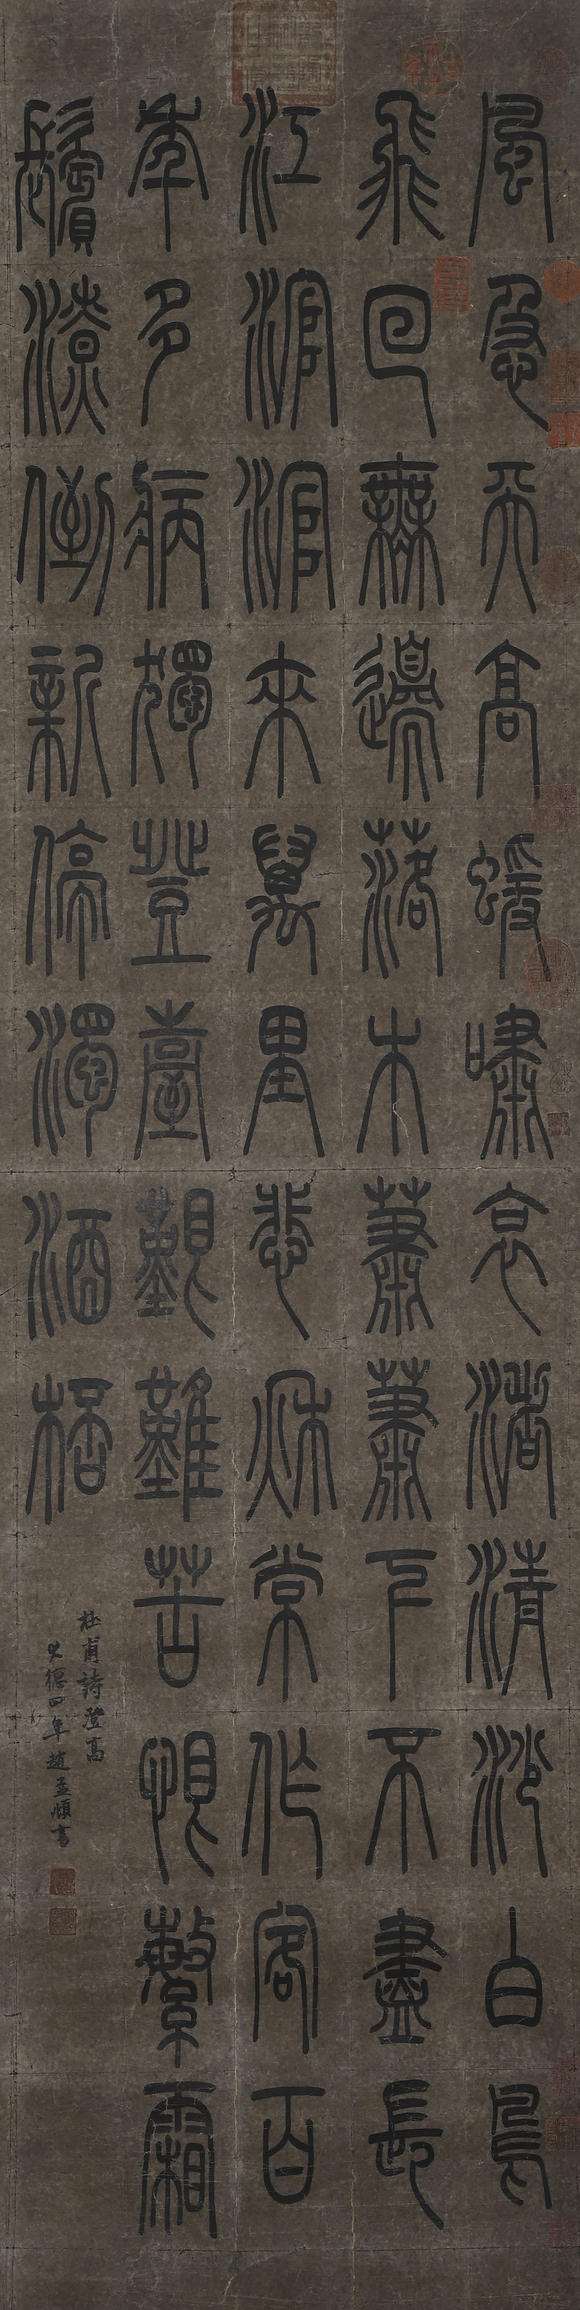 風急天高蝯嘯哀渚清沙白鳥
飛回無邊落木蕭蕭下不盡長
江涫涫來萬里悲秋常作客百
年多病獨登臺艱難苦恨繁霜
鬢潦倒新停濁酒桮
杜甫詩澄高
大德四年趙孟頫書